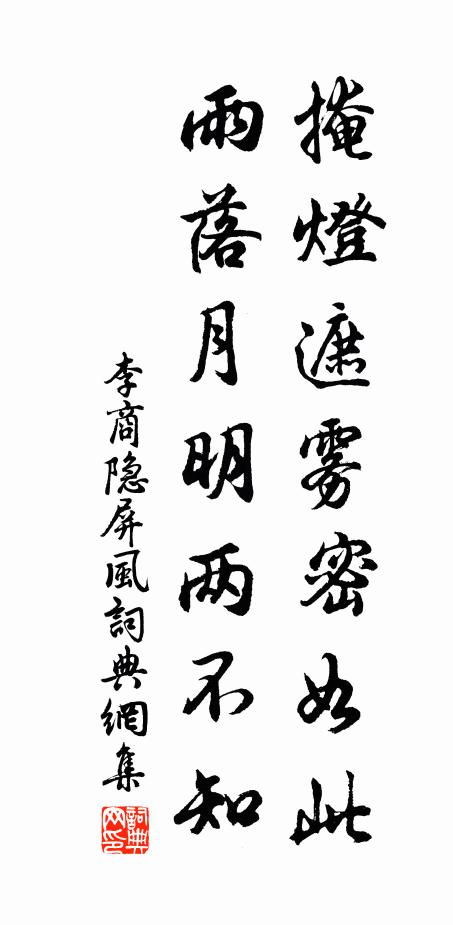 掩燈遮雾密如此
雨落月明两不知
李商隐屏風詞典網集
詞典
网印